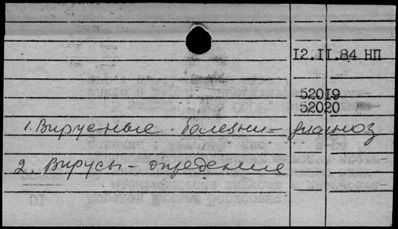 12.11.84 НП
52019
52020
1. Вирусные болезни - диагноз
2. Вирусы - определение